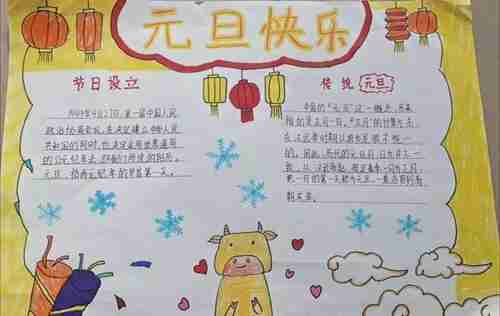 元旦快乐
节日设立
1949年9月27日，第一届中国人民
政治协商会议，在决定建立中华人民
共和国的同时，也决定采用世界通用
的公元纪年法，即我们所说的阳历。
元旦，指西元纪年的岁首第一天。
传统元旦
中国的"元旦"这一概念，历来
指的是正月一日。"正月"的计算方法，
在汉武帝时期以前也是很不统一
的。因此，历代的元旦月、日也并不一